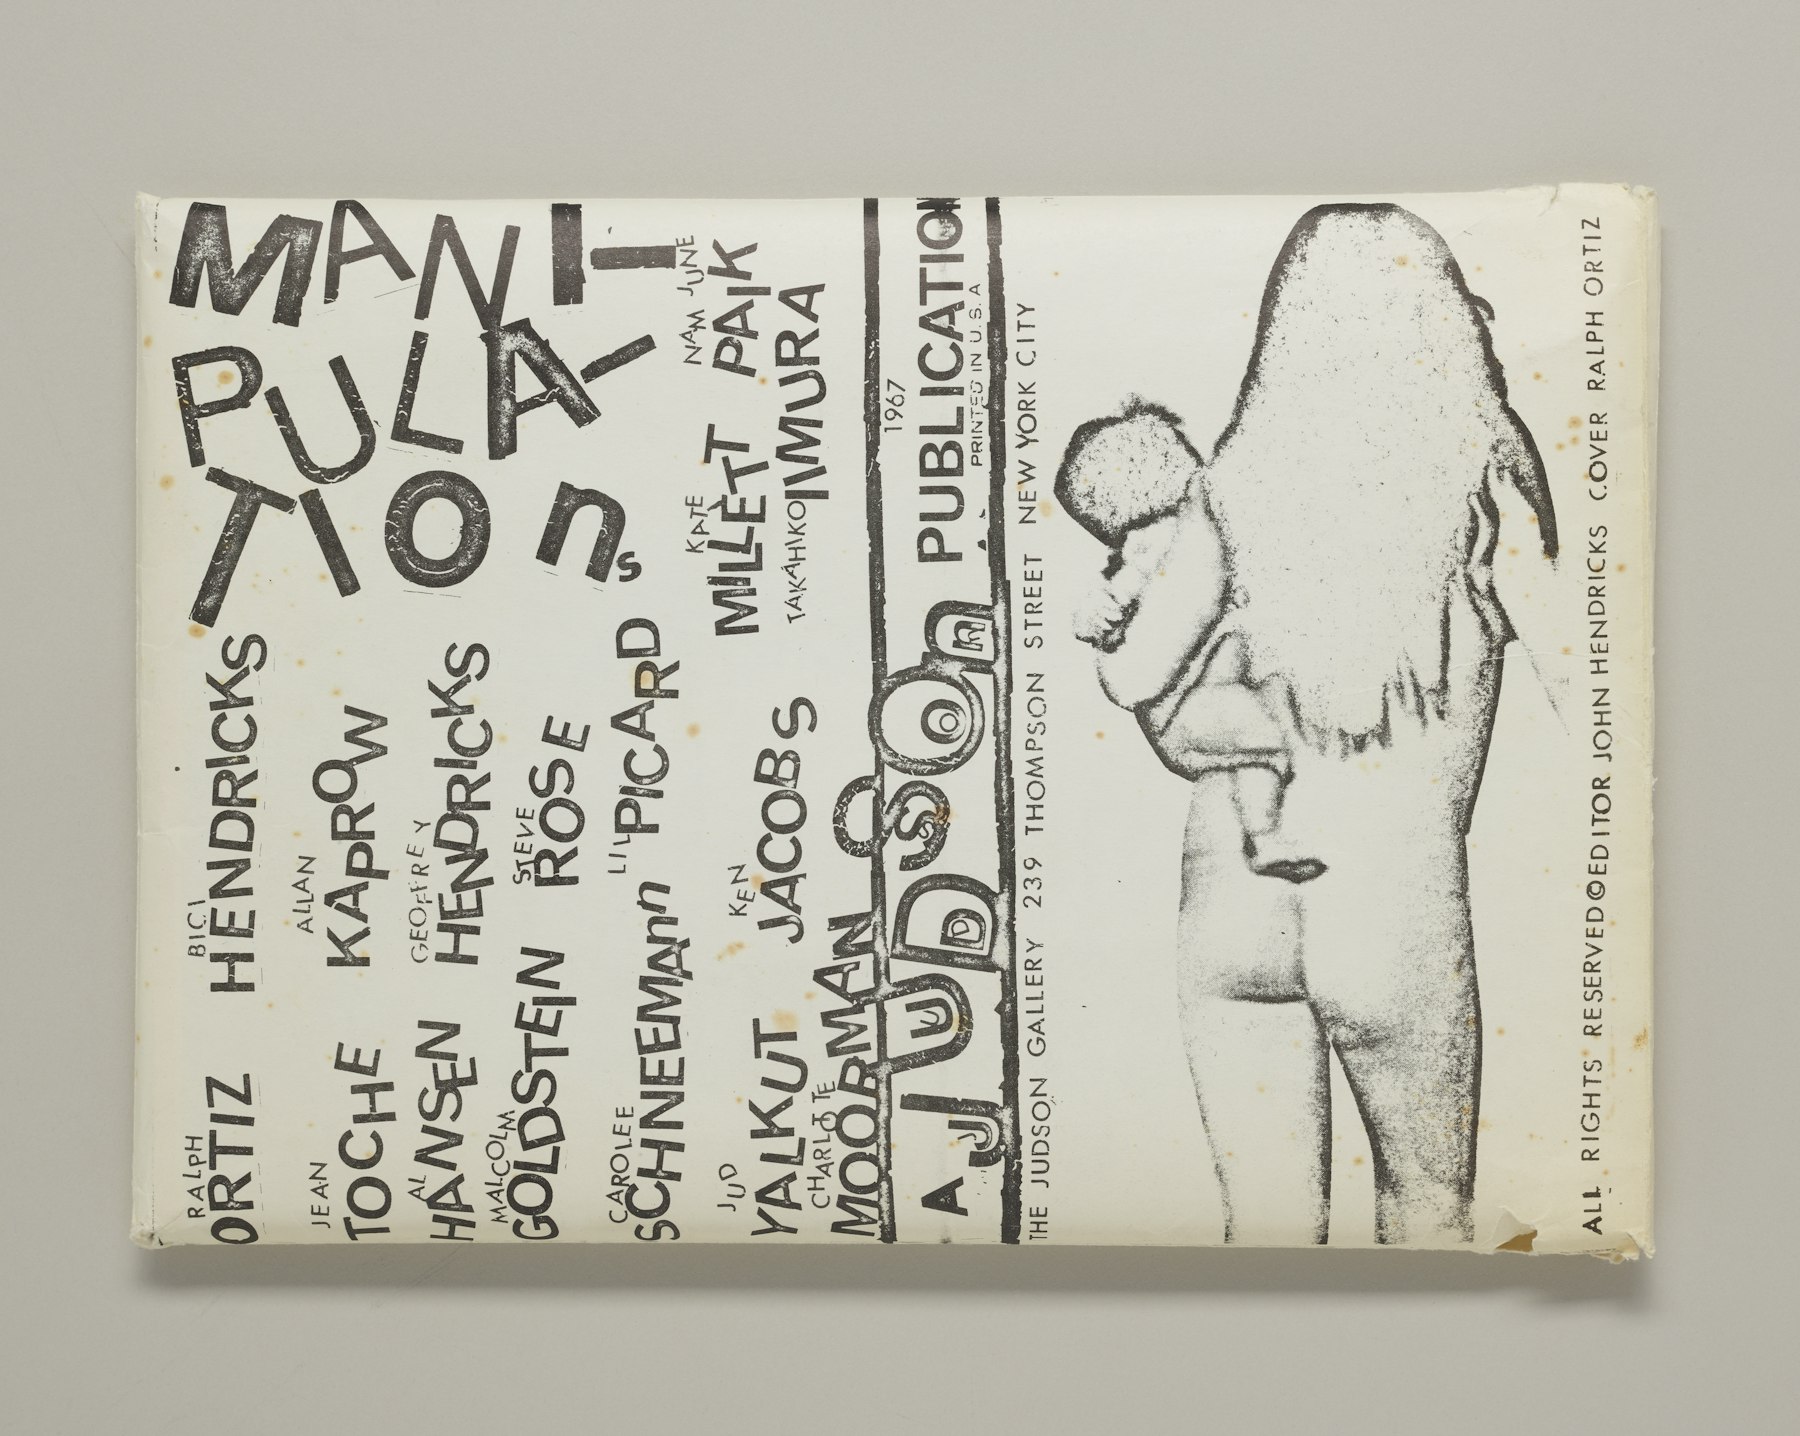 MANI-
PULA-
TIOns
RALPH ORTIZ
BICI HENDRICKS
JEAN TOCHE
ALLAN KAPROW
AL HANSEN
GEOFFREY HENDRICKS
MALCOLM GOLDSTEIN
STEVE ROSE
CAROLEE SCHNEEMAnn
LIL PICARD
KATE MILLETT
NAM JUNE PAIK
JUD YALKUT
KEN JACOBS
TAKAHIKO IIMURA
CHARLOTTE MOORMAN
1967
A JUDSOn PUBLICATION
PRINTED IN U.S.A
THE JUDSON GALLERY 239 THOMPSON STREET NEW YORK CITY
ALL RIGHTS RESERVED © EDITOR JOHN HENDRICKS COVER RALPH ORTIZ